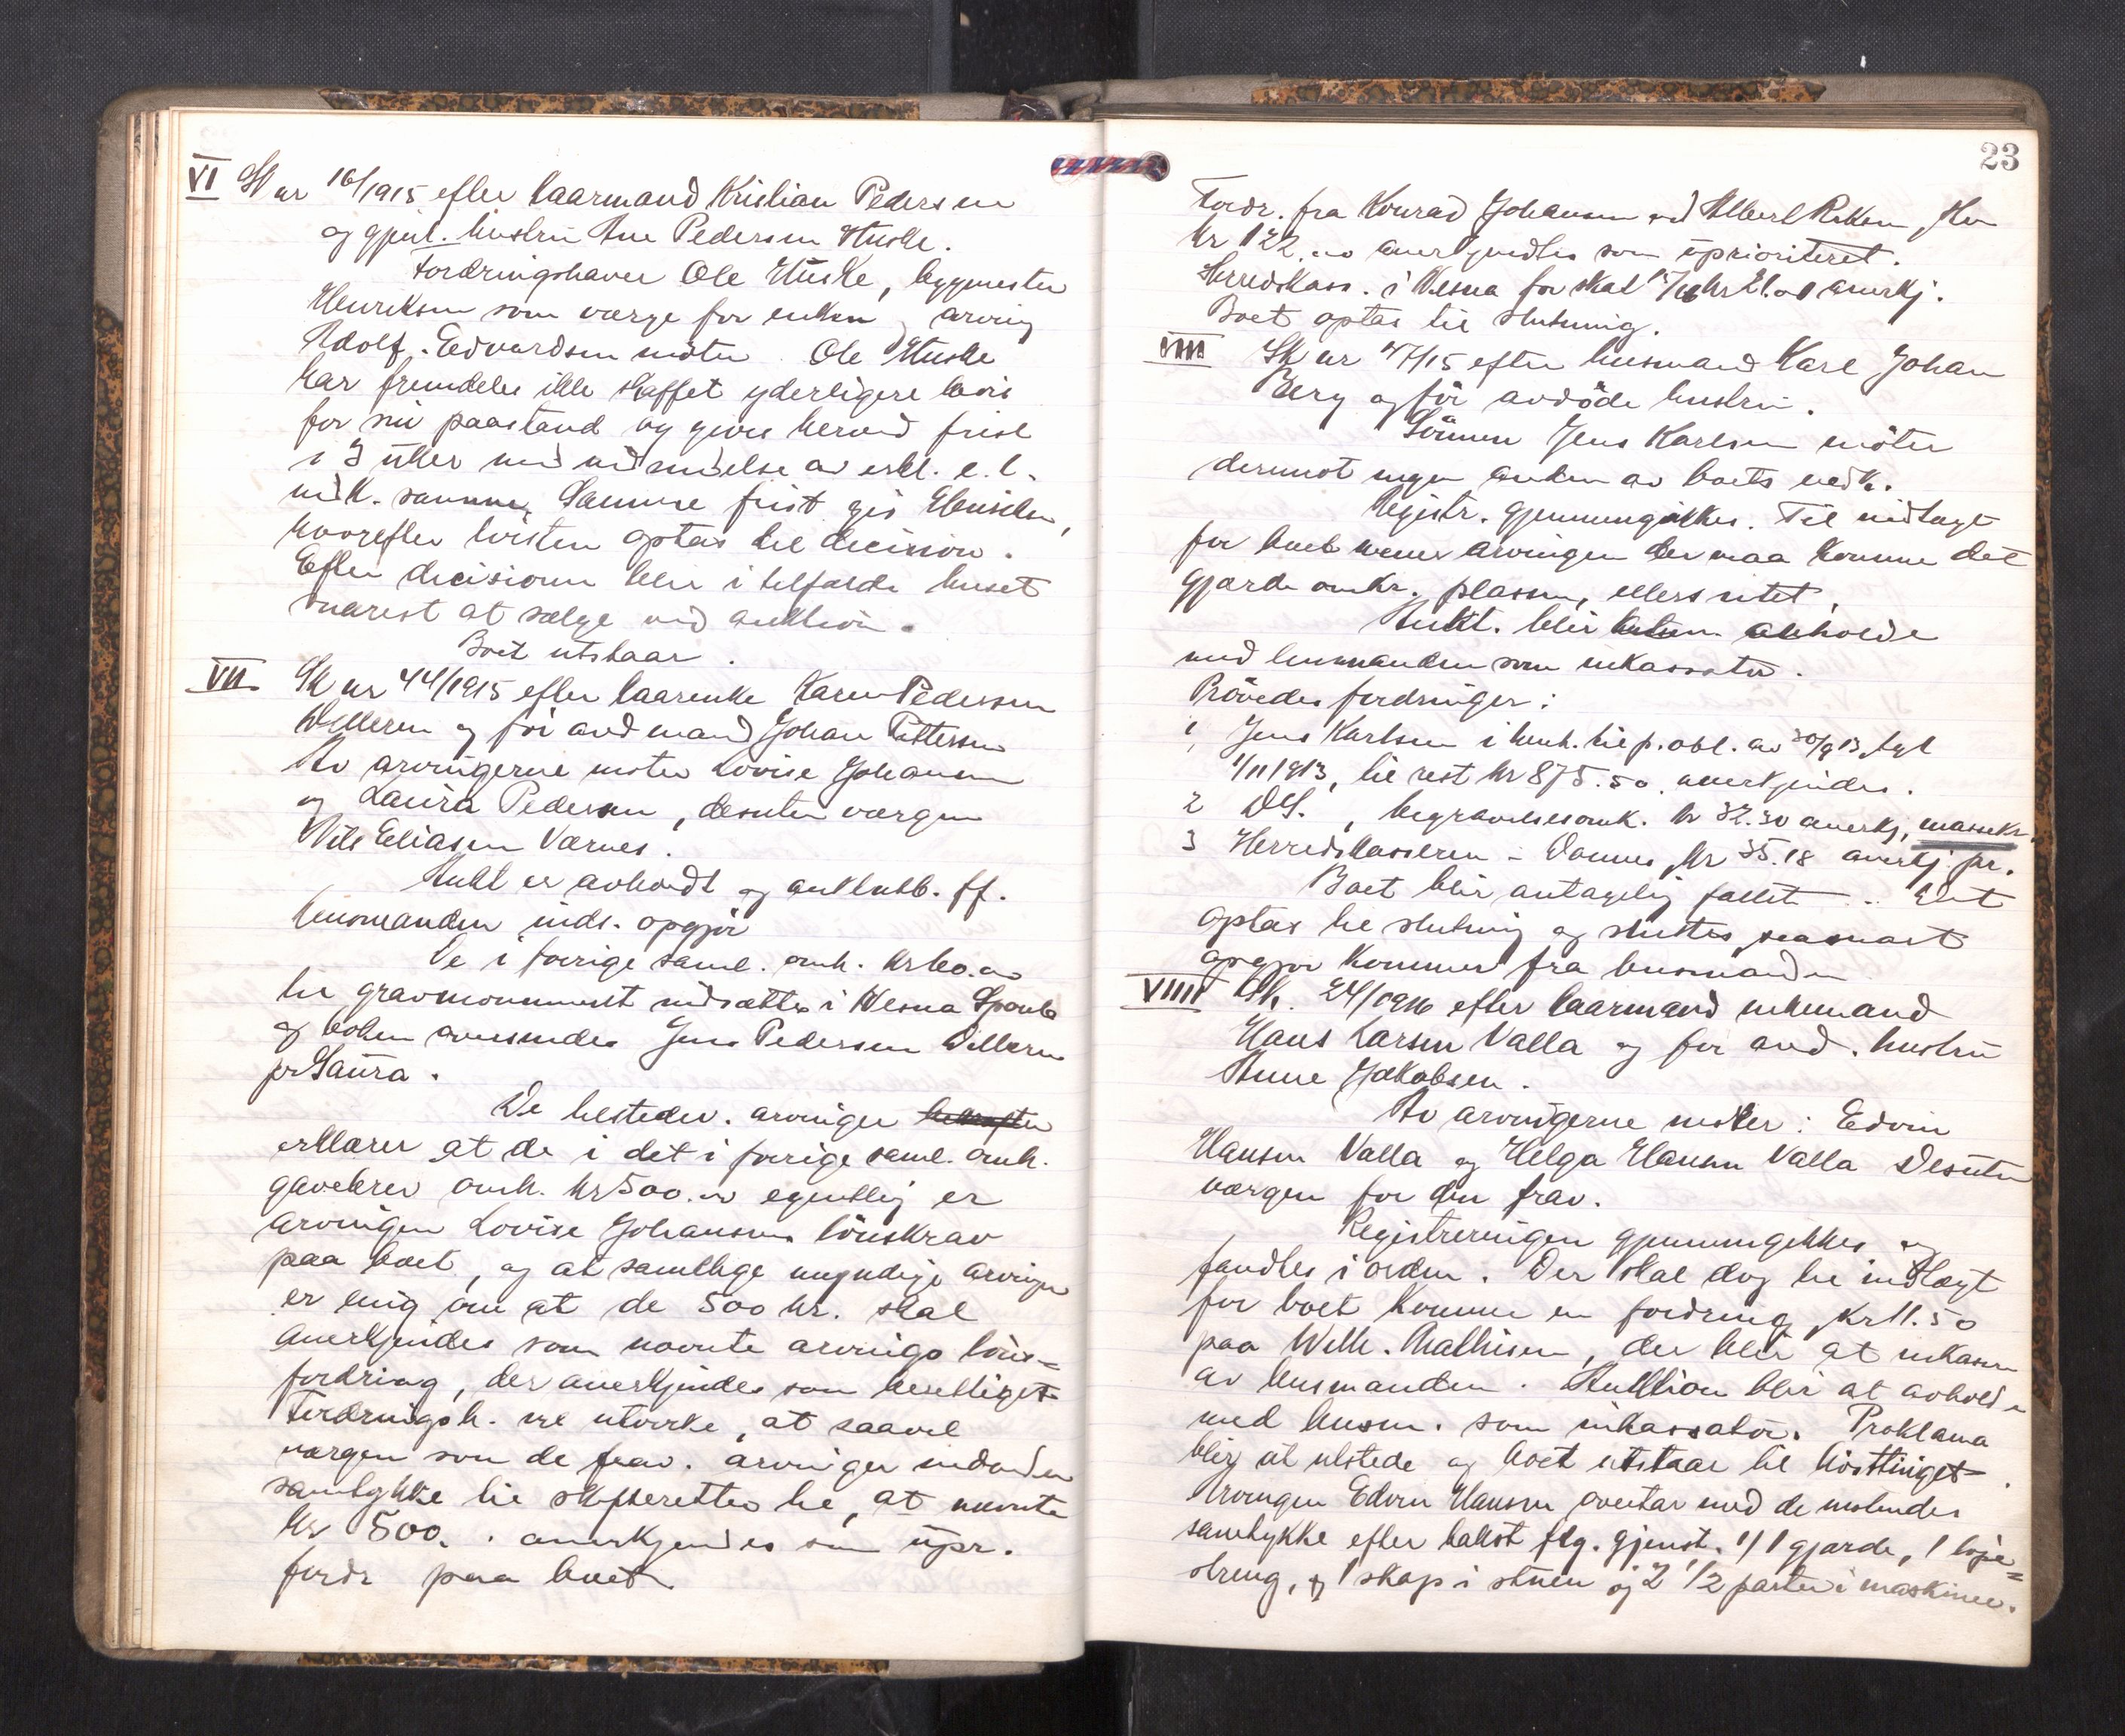 VI Sk nr 16/1915 efter kaarmand Kristian Pedersen
og gjenl. hustru Ane Pedersen Huske.
Fordringshaver Ole Huske, byggmester
Henriksen som værge for enken og arving
Adolf Edvardsen møter. Ole Huske
har fremdeles ikke skaffet yderligere bevis
for sin paastand og gives herved frist
i 3 uker med av erkl. e. l.
vedk. samme. Samme frist gis
hvorefter tvisten optas til decision.
Efter decisionen blir i tilfælde huset
snarest at sælge ved auktion.
Boet utstaar.
VII Sk nr 44/1915 efter kaarenke Karen Pedersen
Velleren og før avd mand Johan Pettersen
Av arvingerne møter Lovise Johansen
og Laura Pedersen, desuten værgen
Nils Eliasen Værnes.
Aukt er avholdt og auktutb. ff.
lensmanden inds. opgjør
De i forrige saml. omh. kr 60.00
til gravmonument indsættes i Vesna Spareb
og boken oversendes Jens Pedersen Velleren
pr Laura.
De tilstedev. arvinger bekræfter
erklærer at de i det i forrige saml. omh.
gavebrev omh. kr 500.00 egentlig er
arvingen Lovise Johansens lønskrav
paa boet, og at samtlige myndige arvinger
er enig om at de 500 kr. skal
anerkjendes som nævnte arvings løns=
fordring, der anerkjendes som beretliget
Fordringsh. vil utvirke, at saavel
værgen som de frav. arvinger indsender
samtykke til skifteretten til, at nævnte
kr 500. anerkjendes som upr.
fordr paa boet.
23
Fordr. fra Konrad Johansen ved Albert
kr 122.00 anerkjendtes som uprioriteret.
Herredskass. i Vesna for skat kr 21.00 anerkj.
Boet optas til slutning.
VIII Sk nr 47/15 efter husmand Karl Johan
Berg og før avdøde hustru.
Sønnen Jens Karlsen møter
derimot ingen anden av boets vedk.
Registr. gjennemgikkes. Til indtægt
for boet mener arvingen der maa komme det
gjærde omkr. plassen, ellers intet.
Aukt. blir avholde
med lensmanden som inkassator.
Prøvedes fordringer:
1, Jens Karlsen i henh. til p. obl. av 30/9 13, tgl
1/11 1913, til rest kr 875.50 anerkjendes.
2 DS., begravelsesomk. kr 32.30 anerkj, massekr.
3 Herredskasseren i Dønnes, kr 35.18 anerkj pr.
Boet blir antagelig fallit. Det
optas til slutning og sluttes saasnart
opgjør kommer fra lensmanden
VIIII Sk. 24/1916 efter kaarmand enkemand
Hans Larsen Valla og før avd. hustru
Anne Jakobsen.
Av arvingerne møter: Edvin
Hansen Valla og Helga Hansen Valla Desuten
værgen for den frav.
Registreringen gjennemgikkes og
fandtes i orden. Der skal dog til indtægt
for boet komme en fordring kr 11.50
paa Wilh. Mathisen, der blir at inkassere
av lensmanden. Auktion blir at avholde
med lensm. som inkassator. Proklama
blir at utstede og boet utstaar til høsttinget.
Arvingen Edvin Hansen overtar med de møtendes
samtykke efter takst flg. gjenst. 1/ 1 gjærde, 1 tøie=
streng, og 1 skap i stuen og 2 1/2 parter i maskiner.